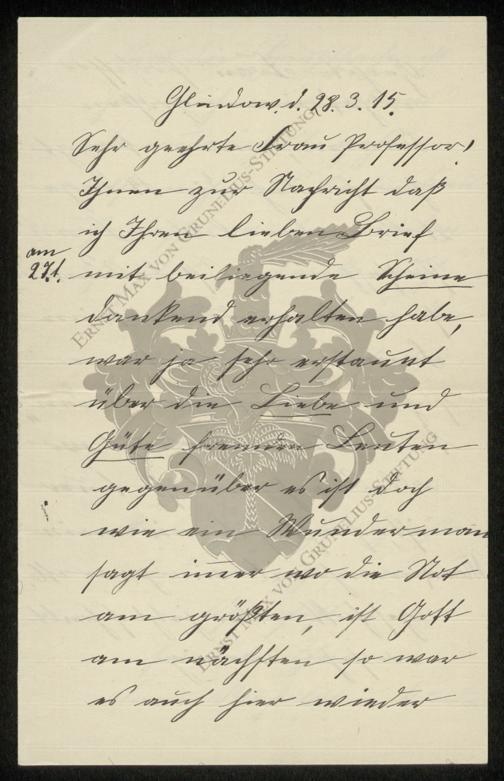 Glindow. d. 28.3.15.
Sehr geehrte Frau Professor!
Ihnen zur Nachricht daß
ich Ihren lieben Brief
am 27.t. mit beiliegende Scheine
dankend erhalten habe,
war ja sehr erstaunt
über die Liebe und
Güte fremden Leuten
gegenüber es ist doch
wie ein Wunder man
sagt imer wo die Not
am größten, ist Gott
am nächsten so war
es auch hier wieder
Ernst Max von Grunelius-Stiftung
Ernst Max von Grunelius-Stiftung